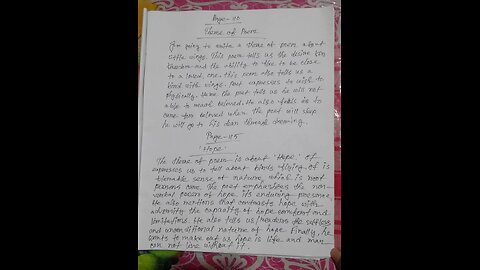 Page-113
Theme of Poem
I'm going to write a theme of poem about
little wings. This poem tells us the desire for
freedom and the ability to flee to be close
to a loved, one. this poem also tells us a
bird with wings. Poet expresses to wish to
physically. Here the poet tells us he will not
able to reach beloved. He also feels is to
come for beloved when the poet will sleep
he will go to his dear through dreaming.
Page-115
'Hope'
The theme of poem is about 'Hope'. Of
expresses us to tell about birds flying. of is
sense of nature, which is root
The poet emphasizes the non-
verbal power of hope. its enduring presence.
He also mentions that contrasts hope with
adversity the capacity of hope comfort and
limitations. He also tells us readers the selfless
and unconditional nature of hope. Finally, he
wants to make out us hope is life and man
can not live without it.